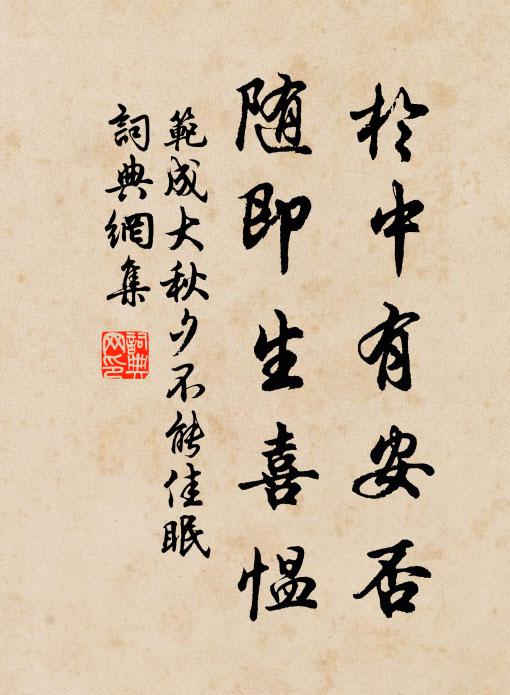 於中有安否
随即生喜愠
範成大秋夕不能佳眠
詞典網集
詞典网印